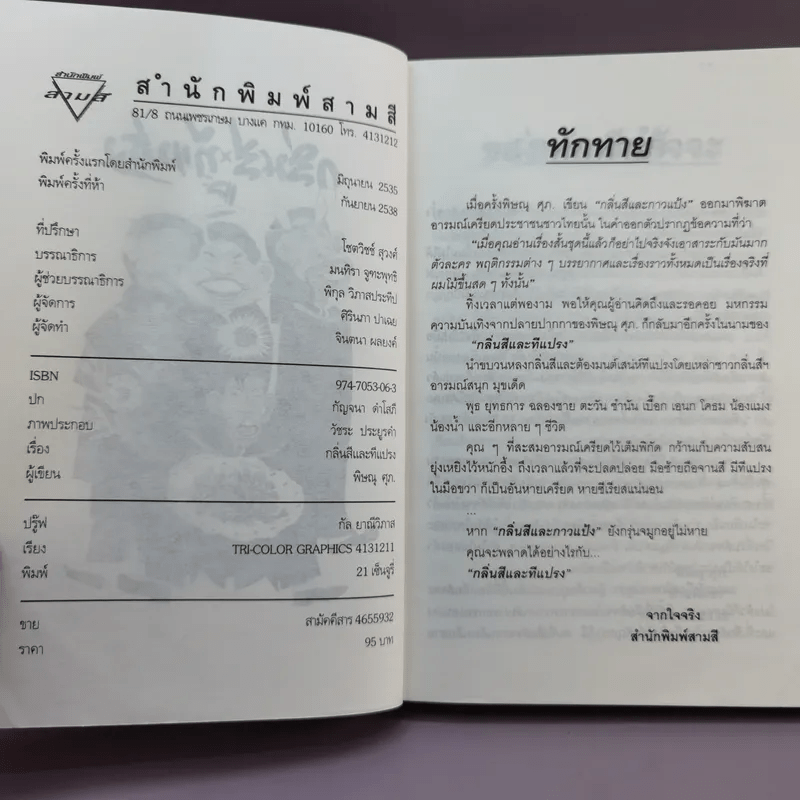 สำนักพิมพ์
สามสี
สำนักพิมพ์สามสี
81/8 ถนนเพชรเกษม บางแค กทม. 10160 โทร. 4131212
พิมพ์ครั้งแรกโดยสำนักพิมพ์ มิถุนายน 2535
พิมพ์ครั้งที่ห้า กันยายน 2538
ที่ปรึกษา โชตวิชช์ สุวงศ์
บรรณาธิการ มนทิรา จูฑะพุทธิ
ผู้ช่วยบรรณาธิการ พิกุล วิภาสประทีป
ผู้จัดการ ศิรินภา ปาเฉย
ผู้จัดทำ จินตนา ผลยงค์
ISBN 974-7053-06-3
ปก กัญจนา ดำโสภี
ภาพประกอบ วัชระ ประยูรคำ
เรื่อง กลิ่นสีและทีแปรง
ผู้เขียน พิษณุ ศุภ.
ปรู๊ฟ กัล ยาณีวิภาส
เรียง TRI-COLOR GRAPHICS 4131211
พิมพ์ 21 เซ็นจูรี่
ขาย สามัคคีสาร 4655932
ราคา 95 บาท
ทักทาย
เมื่อครั้งพิษณุ ศุภ. เขียน "กลิ่นสีและกาวแป้ง" ออกมาพิฆาต
อารมณ์เครียดประชาชนชาวไทยนั้น ในคำออกตัวปรากฏข้อความที่ว่า
"เมื่อคุณอ่านเรื่องสั้นชุดนี้แล้วก็อย่าไปจริงจังเอาสาระกับมันมาก
ตัวละคร พฤติกรรมต่าง ๆ บรรยากาศและเรื่องราวทั้งหมดเป็นเรื่องจริงที่
ผมโม้ขึ้นสด ๆ ทั้งนั้น"
ทิ้งเวลาแต่พองาม พอให้คุณผู้อ่านคิดถึงและรอคอย มหกรรม
ความบันเทิงจากปลายปากกาของพิษณุ ศุภ. ก็กลับมาอีกครั้งในนามของ
"กลิ่นสีและทีแปรง"
นำขบวนหลงกลิ่นสีและต้องมนต์เสน่ห์ทีแปรงโดยเหล่าชาวกลิ่นสีฯ
อารมณ์สนุก มุขเด็ด
พุธ ยุทธการ ฉลองชาย ตะวัน ชำนัน เบื๊อก เอนก โคธม น้องแมง
น้องน้ำ และอีกหลาย ๆ ชีวิต
คุณ ๆ ที่สะสมอารมณ์เครียดไว้เต็มพิกัด กว้านเก็บความสับสน
ยุ่งเหยิงไว้หนักอึ้ง ถึงเวลาแล้วที่จะปลดปล่อย มือซ้ายถือจานสี มีทีแปรง
ในมือขวา ก็เป็นอันหายเครียด หายซีเรียสแน่นอน
...
หาก "กลิ่นสีและกาวแป้ง" ยังกรุ่นจมูกอยู่ไม่หาย
คุณจะพลาดได้อย่างไรกับ...
"กลิ่นสีและทีแปรง"
จากใจจริง
สำนักพิมพ์สามสี